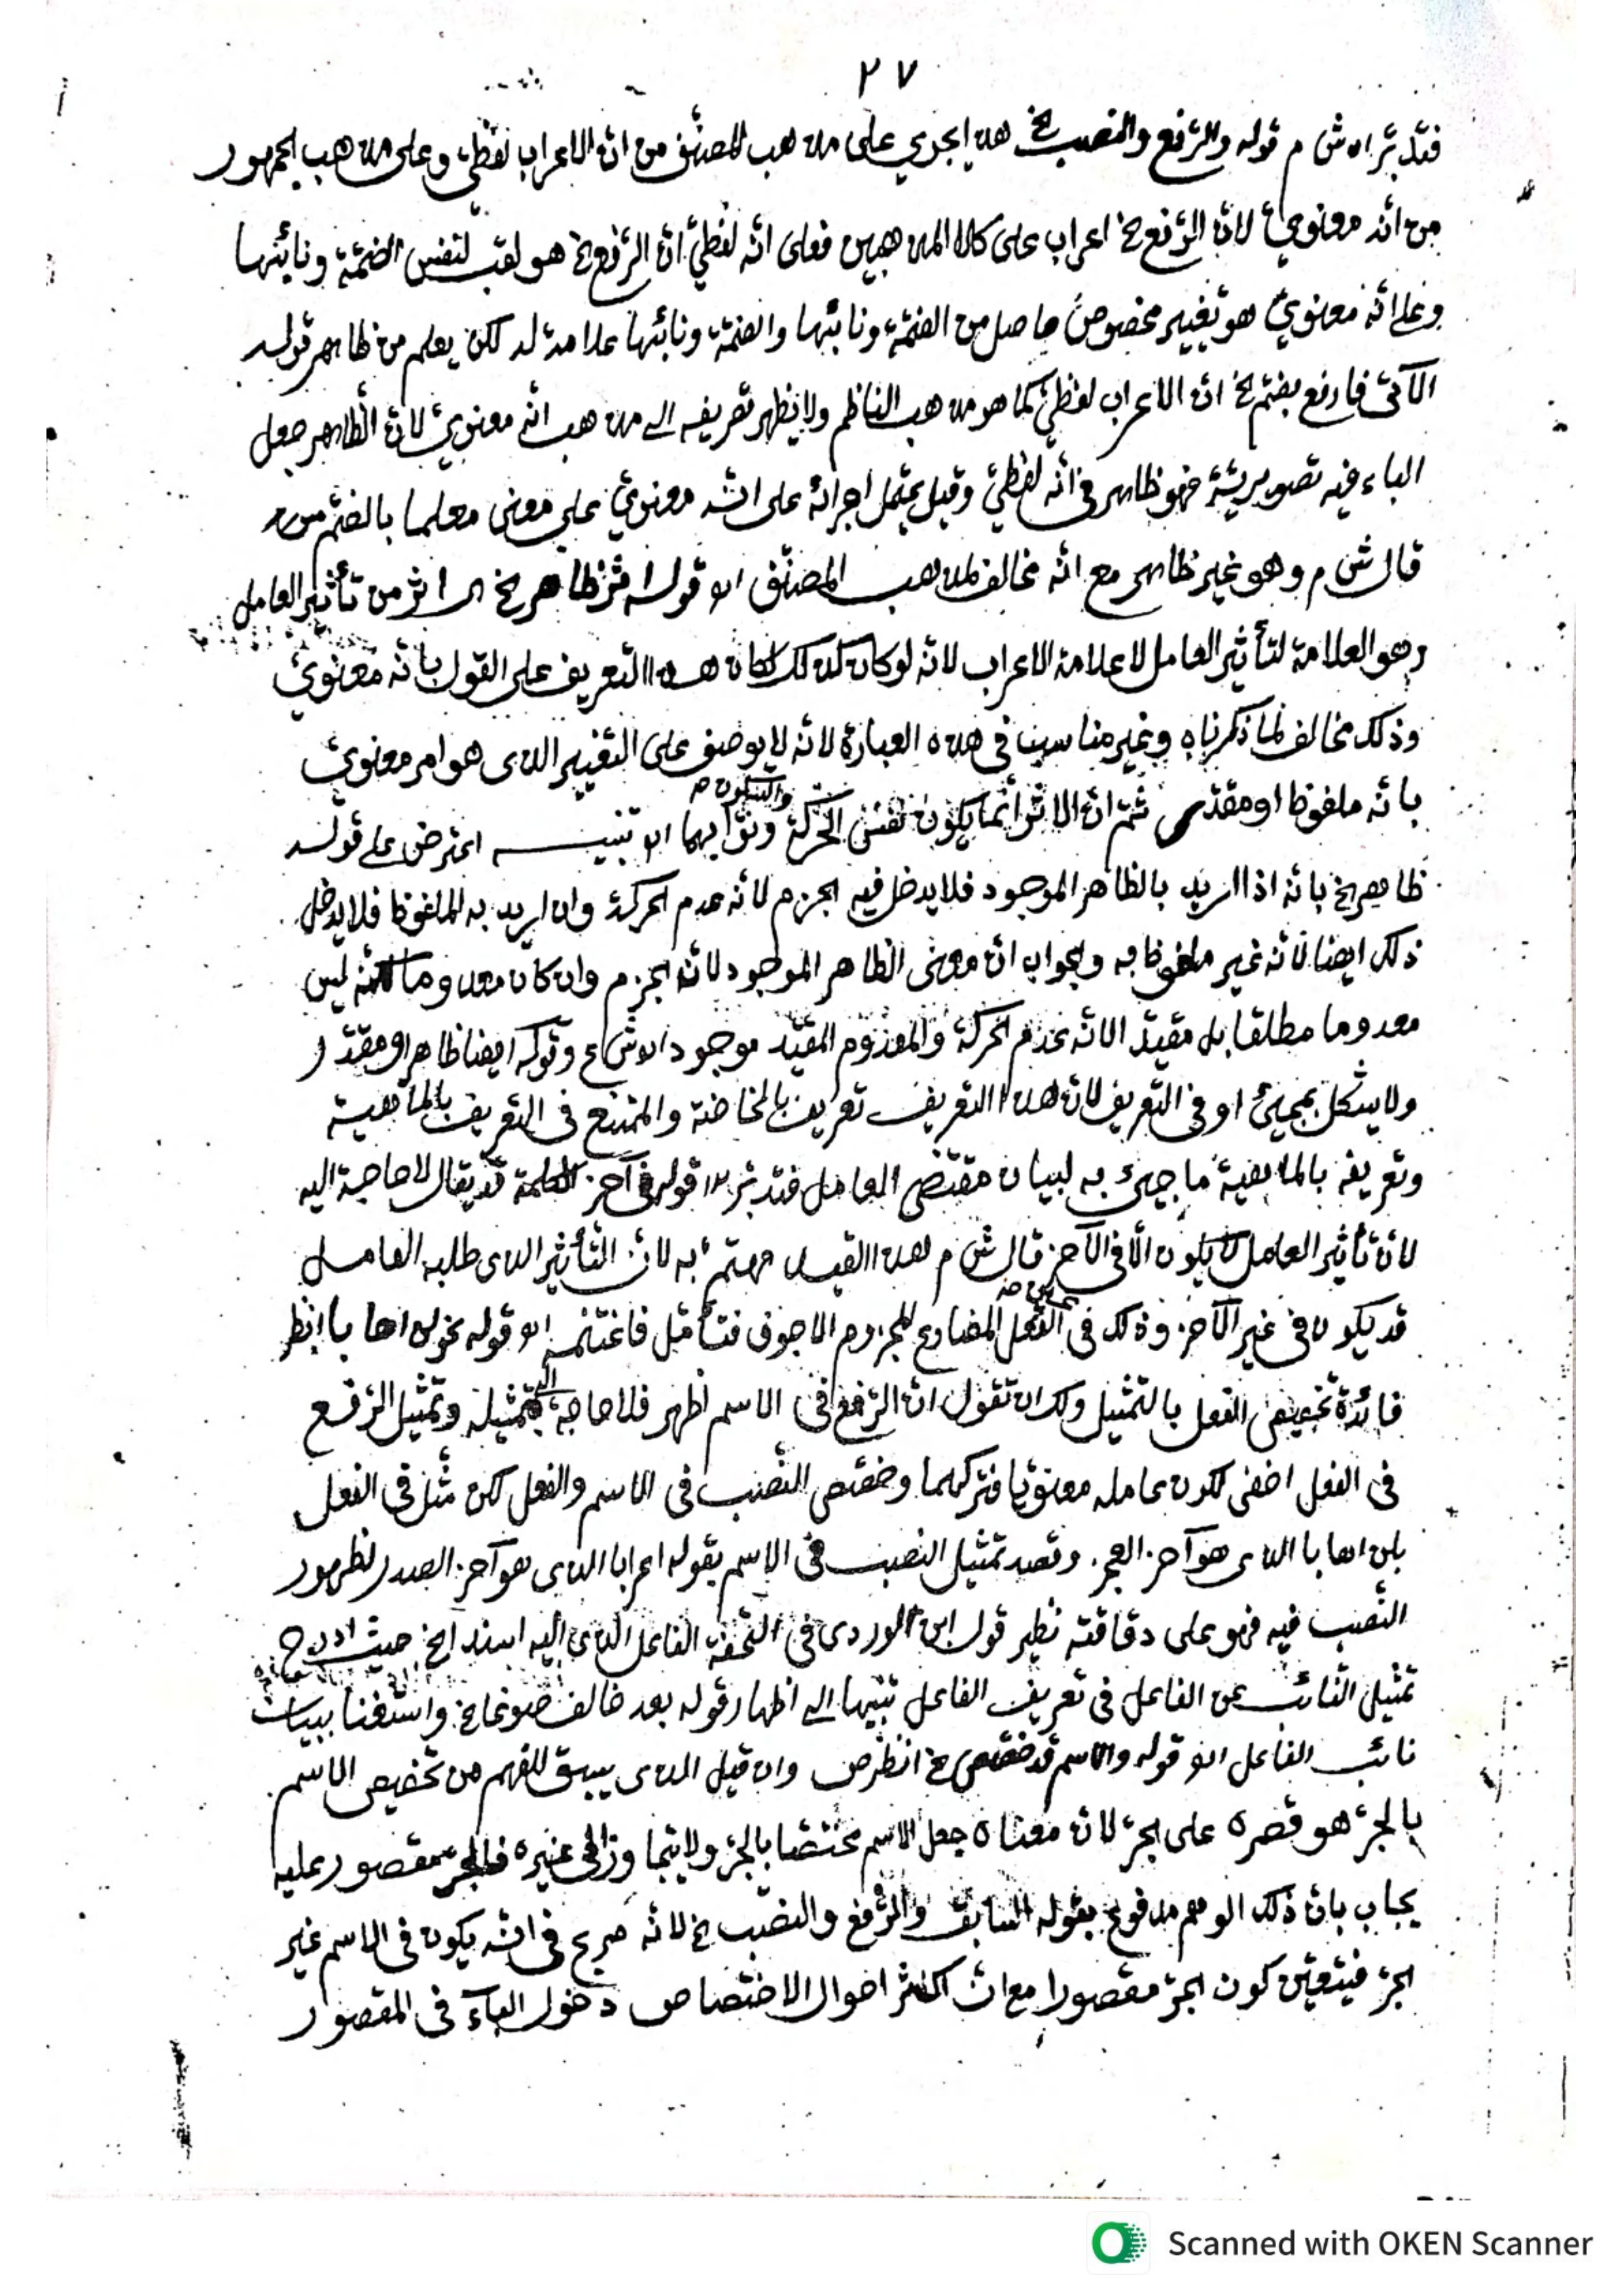 ٢٧
فتدبر اه ش م قوله والرفع والنصب الخ هذا يجري على مذهب المصنف من ان الاعراب لفظي وعلى مذهب الجمهور
من انه معنوي لان الرفع الخ اعراب على كلا المذهبين فعلى انه لفظي ان الرفع الخ هو لقب لنفس الضمة ونائبها
وعلى انه معنوي هو تغيير مخصوص حاصل من الضمة ونائبها والضمة ونائبها علامة له لكن يعلم من ظاهر قوله
الآتى فارفع بضم الخ ان الاعراب لفظي كما هو مذهب الناظم ولا يظهر تعريفه الى مذهب انه معنوي لان الظاهر جعل
الباء فيه تصويرية فهو ظاهر في انه لفظي وقيل يحتمل اجرائه على انه معنوي على معنى معلما بالضم من
قال ش م وهو غير ظاهر مع انه مخالف لمذهب المصنف اه قوله اثر ظاهر الخ اى اثر من تأثير العامل
وهو العلامة لتأثير العامل لا علامة الاعراب لانه لو كان كذلك لكان هذا التعريف على القول بانه معنوي
وذلك مخالف لما ذكرناه وغير مناسب في هذه العبارة لانه لا يوصف على التغيير الذى هو امر معنوي
بانه ملفوظ او مقدر ثم ان الاثر انما يكون نفس الحركة والسكون صه ونوابهما اه تنبيه اعترض على قوله
ظاهر الخ بانه اذا اريد بالظاهر الموجود فلا يدخل فيه الجزم لانه عدم الحركة وان اريد به الملفوظ فلا يدخل
ذلك ايضا لانه غير ملفوظ به والجواب ان معنى الظاهر الموجود لانه الجزم وان كان معدوما لكنه ليس
معدوما مطلقا بل مقيد لانه عدم الحركة والمعدوم المقيد موجود اه ش ع وقوله ايضا ظاهر او مقدر
ولا يشكل بمجيئ او في التعريف لان هذا التعريف تعريف بالخاصة والممتنع فى التعريف بالماهية
وتعريفه بالماهية ما جيئ به لبيان مقتضى العامل فتدبر اه قوله في آخر الكلمة قد يقال لا حاجة اليه
لان تأثير العامل لا يكون الا فى الآخر قال ش م هذا القيد مهتم به لان التأثير الذى طلبه العامل
قد يكون في غير الآخر وذلك في الفعل المضارع المجزوم الاجوف فتأمل فاغتنم اه قوله نحو لن اهابا انظر
فائدة تخصيص الفعل بالتمثيل ولك ان تقول ان الرفع في الاسم اظهر فلا حاجة الى تمثيله وتمثيل الرفع
في الفعل اخفى لكون عامله معنويا فتركهما وخصص النصب فى الاسم والفعل لكن مثل فى الفعل
بلن اهابا الذى هو آخر العجز وقصد تمثيل النصب فى الاسم بقوله اعرابا الذى هو آخر الصدر لظهور
النصب فيه فهو على دقاقته نظير قول ابن الوردى في التحفة الفاعل الذى اليه اسند الخ حيث ادرج
تمثيل النائب عن الفاعل فى تعريف الفاعل تنبيها الى اظهار قوله بعد خالف صوغا الخ واستغنا ببيان
نائب الفاعل اه قوله والاسم قد خصص الخ انظر ص وان قيل الذى يسبق للفهم من تخصيص الاسم
بالجر هو قصره على الجر لان معناه جعل الاسم مختصا بالجر ولا يتجاوز الى غيره فالجر مقصور عليه
يجاب بان ذلك الوهم مدفوع بقوله السابق والرفع والنصب الخ لانه صريح فى انه يكون فى الاسم غير
الجر فيتعين كون الجر مقصورا مع ان اكثر احوال الاختصاص دخول الباء فى المقصور
Scanned with OKEN Scanner